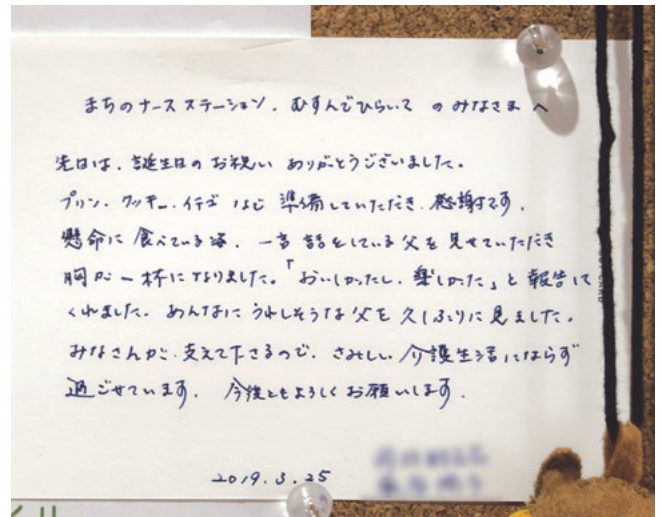 まちのナースステーション、むすんでひらいて のみなさまへ
先日は、誕生日のお祝い ありがとうございました。
プリン、クッキー、イチゴ など 準備していただき、感謝です。
懸命に食べている姿、一言話をしている父を見せていただき
胸が一杯になりました。「おいしかったし、楽しかった」と報告して
くれました。あんなにうれしそうな父を久しぶりに見ました。
みなさんが、支えて下さるので、さみしい介護生活にならず
過ごせています。今後ともよろしくお願いします。
2019.3.25